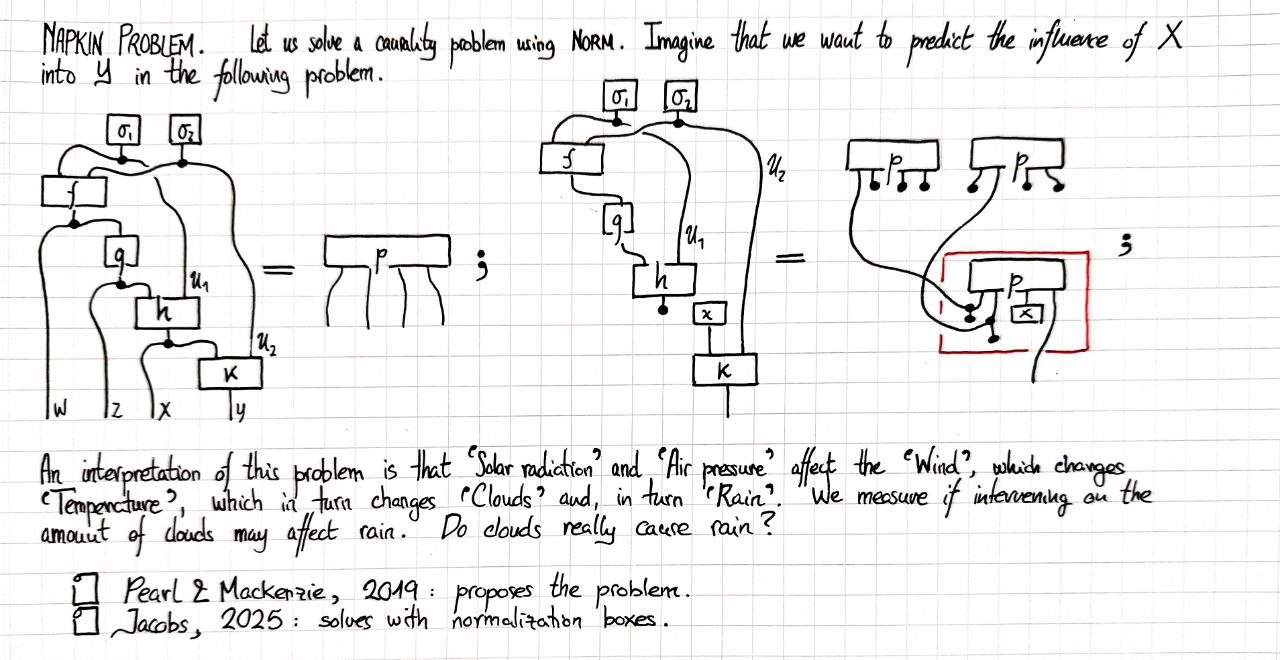 NAPKIN PROBLEM. Let us solve a causality problem using NORM. Imagine that we want to predict the influence of X
into Y in the following problem.
σ₁ σ₂
f
g
h
U₁
K
U₂
W Z X Y
=
p
;
σ₁ σ₂
f
U₂
g
U₁
h
x
K
=
p p
p
x
;
An interpretation of this problem is that "Solar radiation" and "Air pressure" affect the "Wind", which changes
"Temperature", which in turn changes "Clouds" and, in turn "Rain". We measure if intervening on the
amount of clouds may affect rain. Do clouds really cause rain?
Pearl & Mackenzie, 2019: proposes the problem.
Jacobs, 2025: solves with normalization boxes.